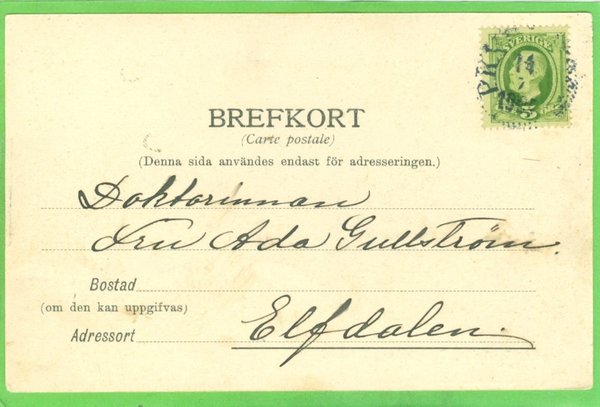 SVERIGE
14
5
BREFKORT
(Carte postale)
(Denna sida användes endast för adresseringen.)
Doktorinnan
Fru Ada Gullström.
Bostad
(om den kan uppgifvas)
Adressort Elfdalen.